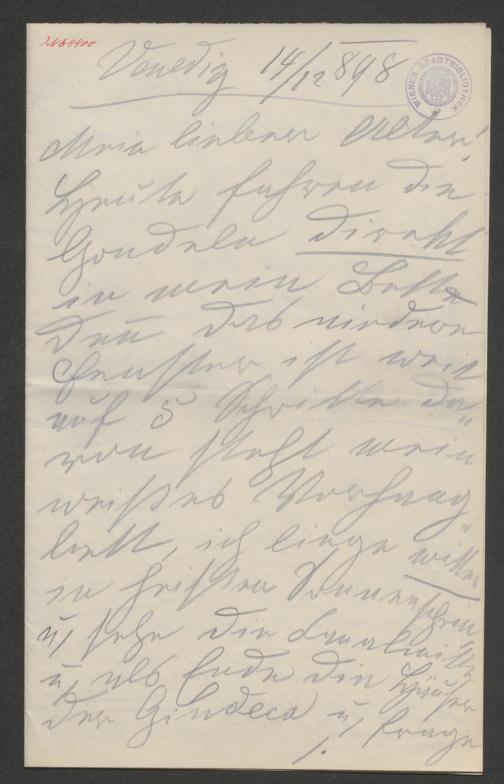 Venedig 14/12 898
WIENER STADTBIBLIOTHEK
Mein lieber Alter!
Heute fahren die
Gondeln direkt
in mein Bett
den̄ das niedere
Fenster ist weit
auf 5 Schritte da„
von steht mein
weißes Vorhang„
bett, ich liege mitten
in heißen Sonnenschein
u, sehe die
u, als Ende die Häuser
der Giudeca u, frage